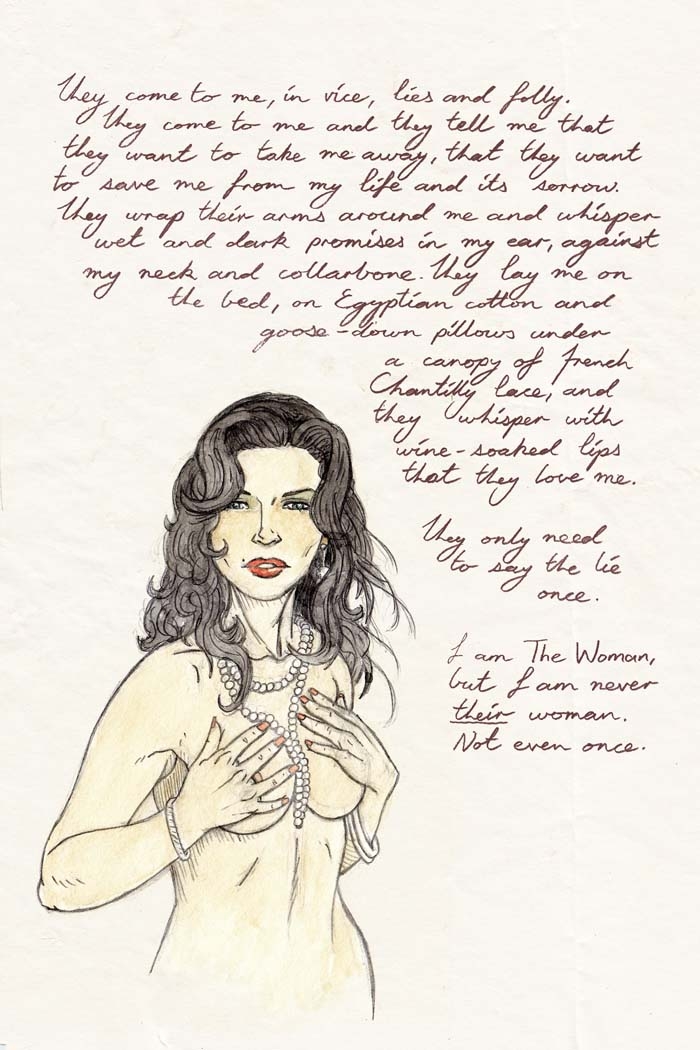 They come to me, in vice, lies and folly.
They come to me and they tell me that
they want to take me away, that they want
to save me from my life and its sorrow.
They wrap their arms around me and whisper
wet and dark promises in my ear, against
my neck and collarbone. They lay me on
the bed, on Egyptian cotton and
goose-down pillows under
a canopy of french
Chantilly lace, and
they whisper with
wine-soaked lips
that they love me.
They only need
to say the lie
once.
I am The Woman,
but I am never
their woman.
Not even once.